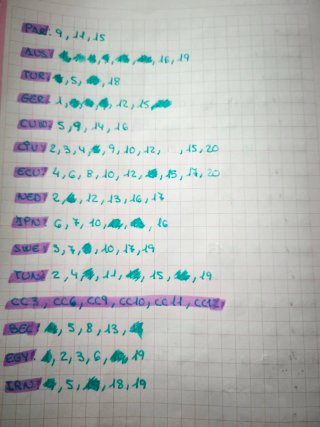 PAR: 9, 11, 15
AUS: 16, 19
TUR: 5, 18
GER: 1, 12, 15
CUW: 5, 9, 14, 16
CPV: 2, 3, 4, 9, 10, 12, 15, 20
ECU: 4, 6, 8, 10, 12, 15, 17, 20
NED: 2, 12, 13, 16, 17
JPN: 6, 7, 10, 16
SWE: 3, 7, 10, 17, 19
TUN: 2, 4, 11, 15, 19
CC3, CC6, CC9, CC10, CC11, CC12
BEL: 5, 8, 13
EGY: 2, 3, 6, 19
IRN: 5, 18, 19